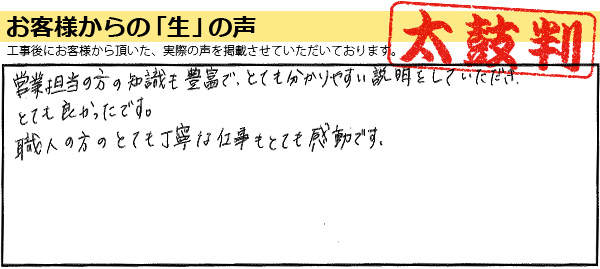 お客様からの「生」の声
工事後にお客様から頂いた、実際の声を掲載させていただいております。
太鼓判
営業担当の方の知識も豊富で、とても分かりやすい説明をしていただき、
とても良かったです。
職人の方のとても丁寧な仕事もとても感動です。